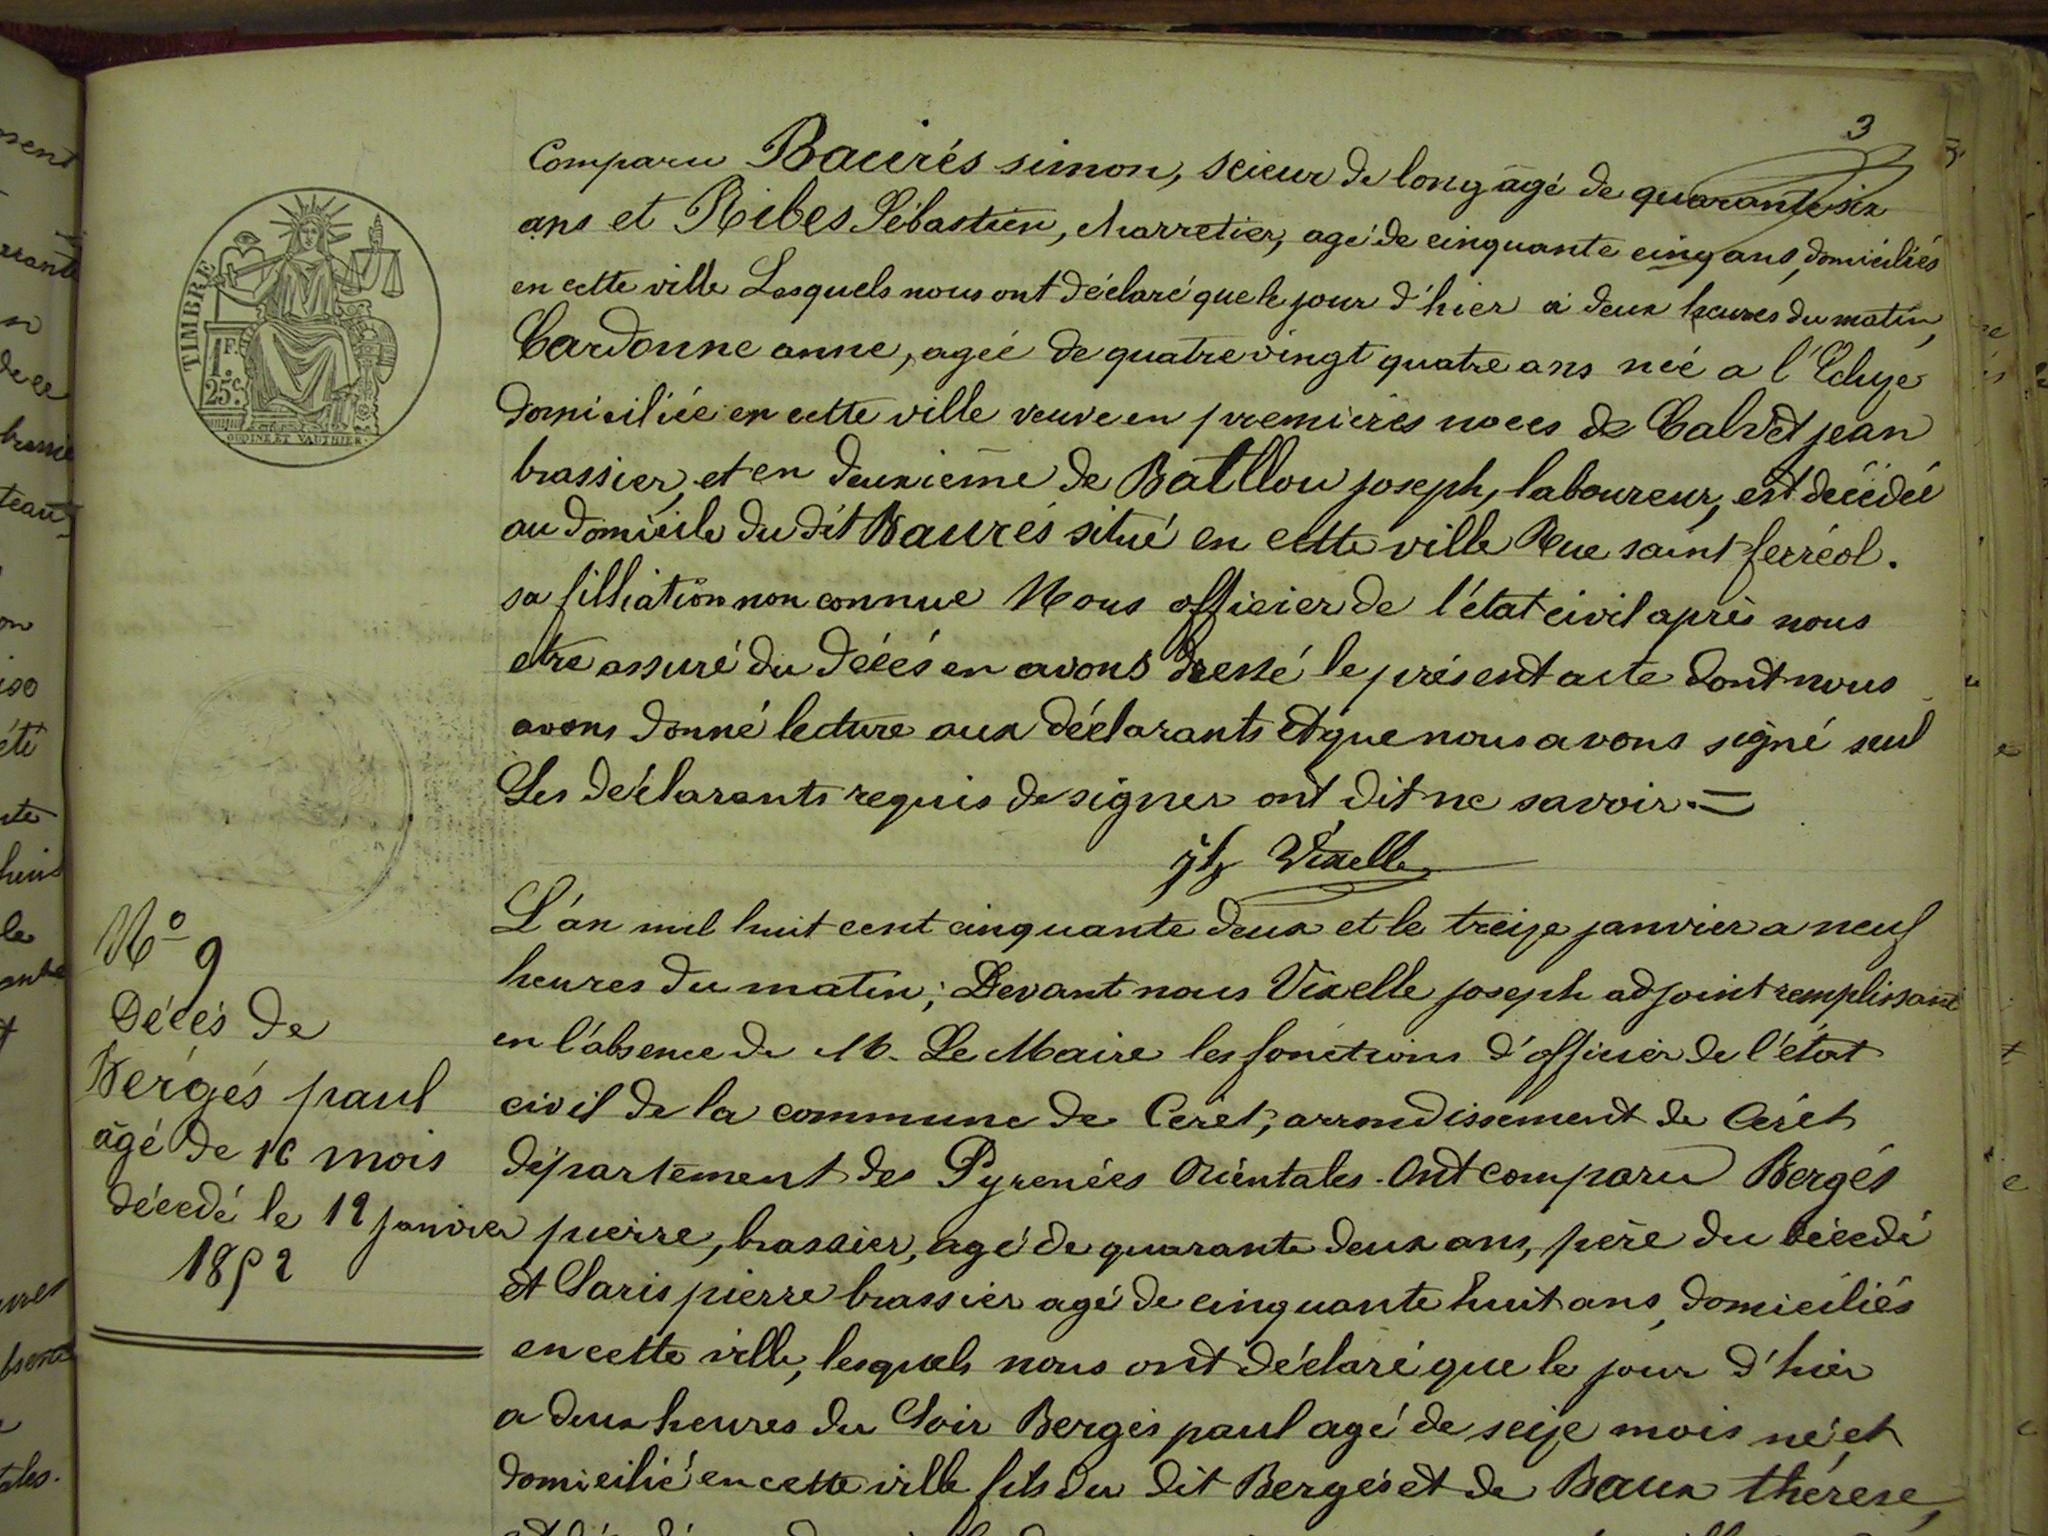 3
Comparu Baurés simon, scieur de long âgé de quarante six
ans et Ribes Sébastien, charretier, agé de cinquante cinq ans, domiciliés
en cette ville Lesquels nous ont déclaré que le jour d'hier a deux heures du matin,
Cardonne anne, agée de quatre vingt quatre ans née a l'Ecluse
domiciliée en cette ville veuve en premières noces de Calvet jean
brassier, et en deuxième de Batllou joseph, laboureur, est décédée
au domicile du dit Baurés situé en cette ville Rue saint ferréol.
sa filliation non connue Nous officier de l'état civil après nous
etre assuré du décés en avons dressé le présent acte dont nous
avons donné lecture aux déclarants et que nous avons signé seul
Les déclarants requis de signer ont dit ne savoir. =
jh Vixelle
L'an mil huit cent cinquante deux et le treize janvier a neuf
heures du matin; Devant nous Vixelle joseph adjoint remplissant
en l'absence de M. Le Maire les fonctions d'officier de l'état
civil de la commune de Ceret, arrondissement de Céret
département des Pyrenées Orientales. Ont comparu Bergés
pierre, brassier, agé de quarante deux ans, père du décedé
et Paris pierre brassier agé de cinquante huit ans, domiciliés
en cette ville, lesquels nous ont déclaré que le jour d'hier
a deux heures du Soir Bergés paul agé de seize mois né et
domicilié en cette ville fils du dit Bergés et de Baux thérése,
TIMBRE
1F.
25c.
OUDINÉ ET VAUTHIER.
No 9
Décés de
Bergés paul
âgé de 16 mois
décedé le 12 janvier
1852